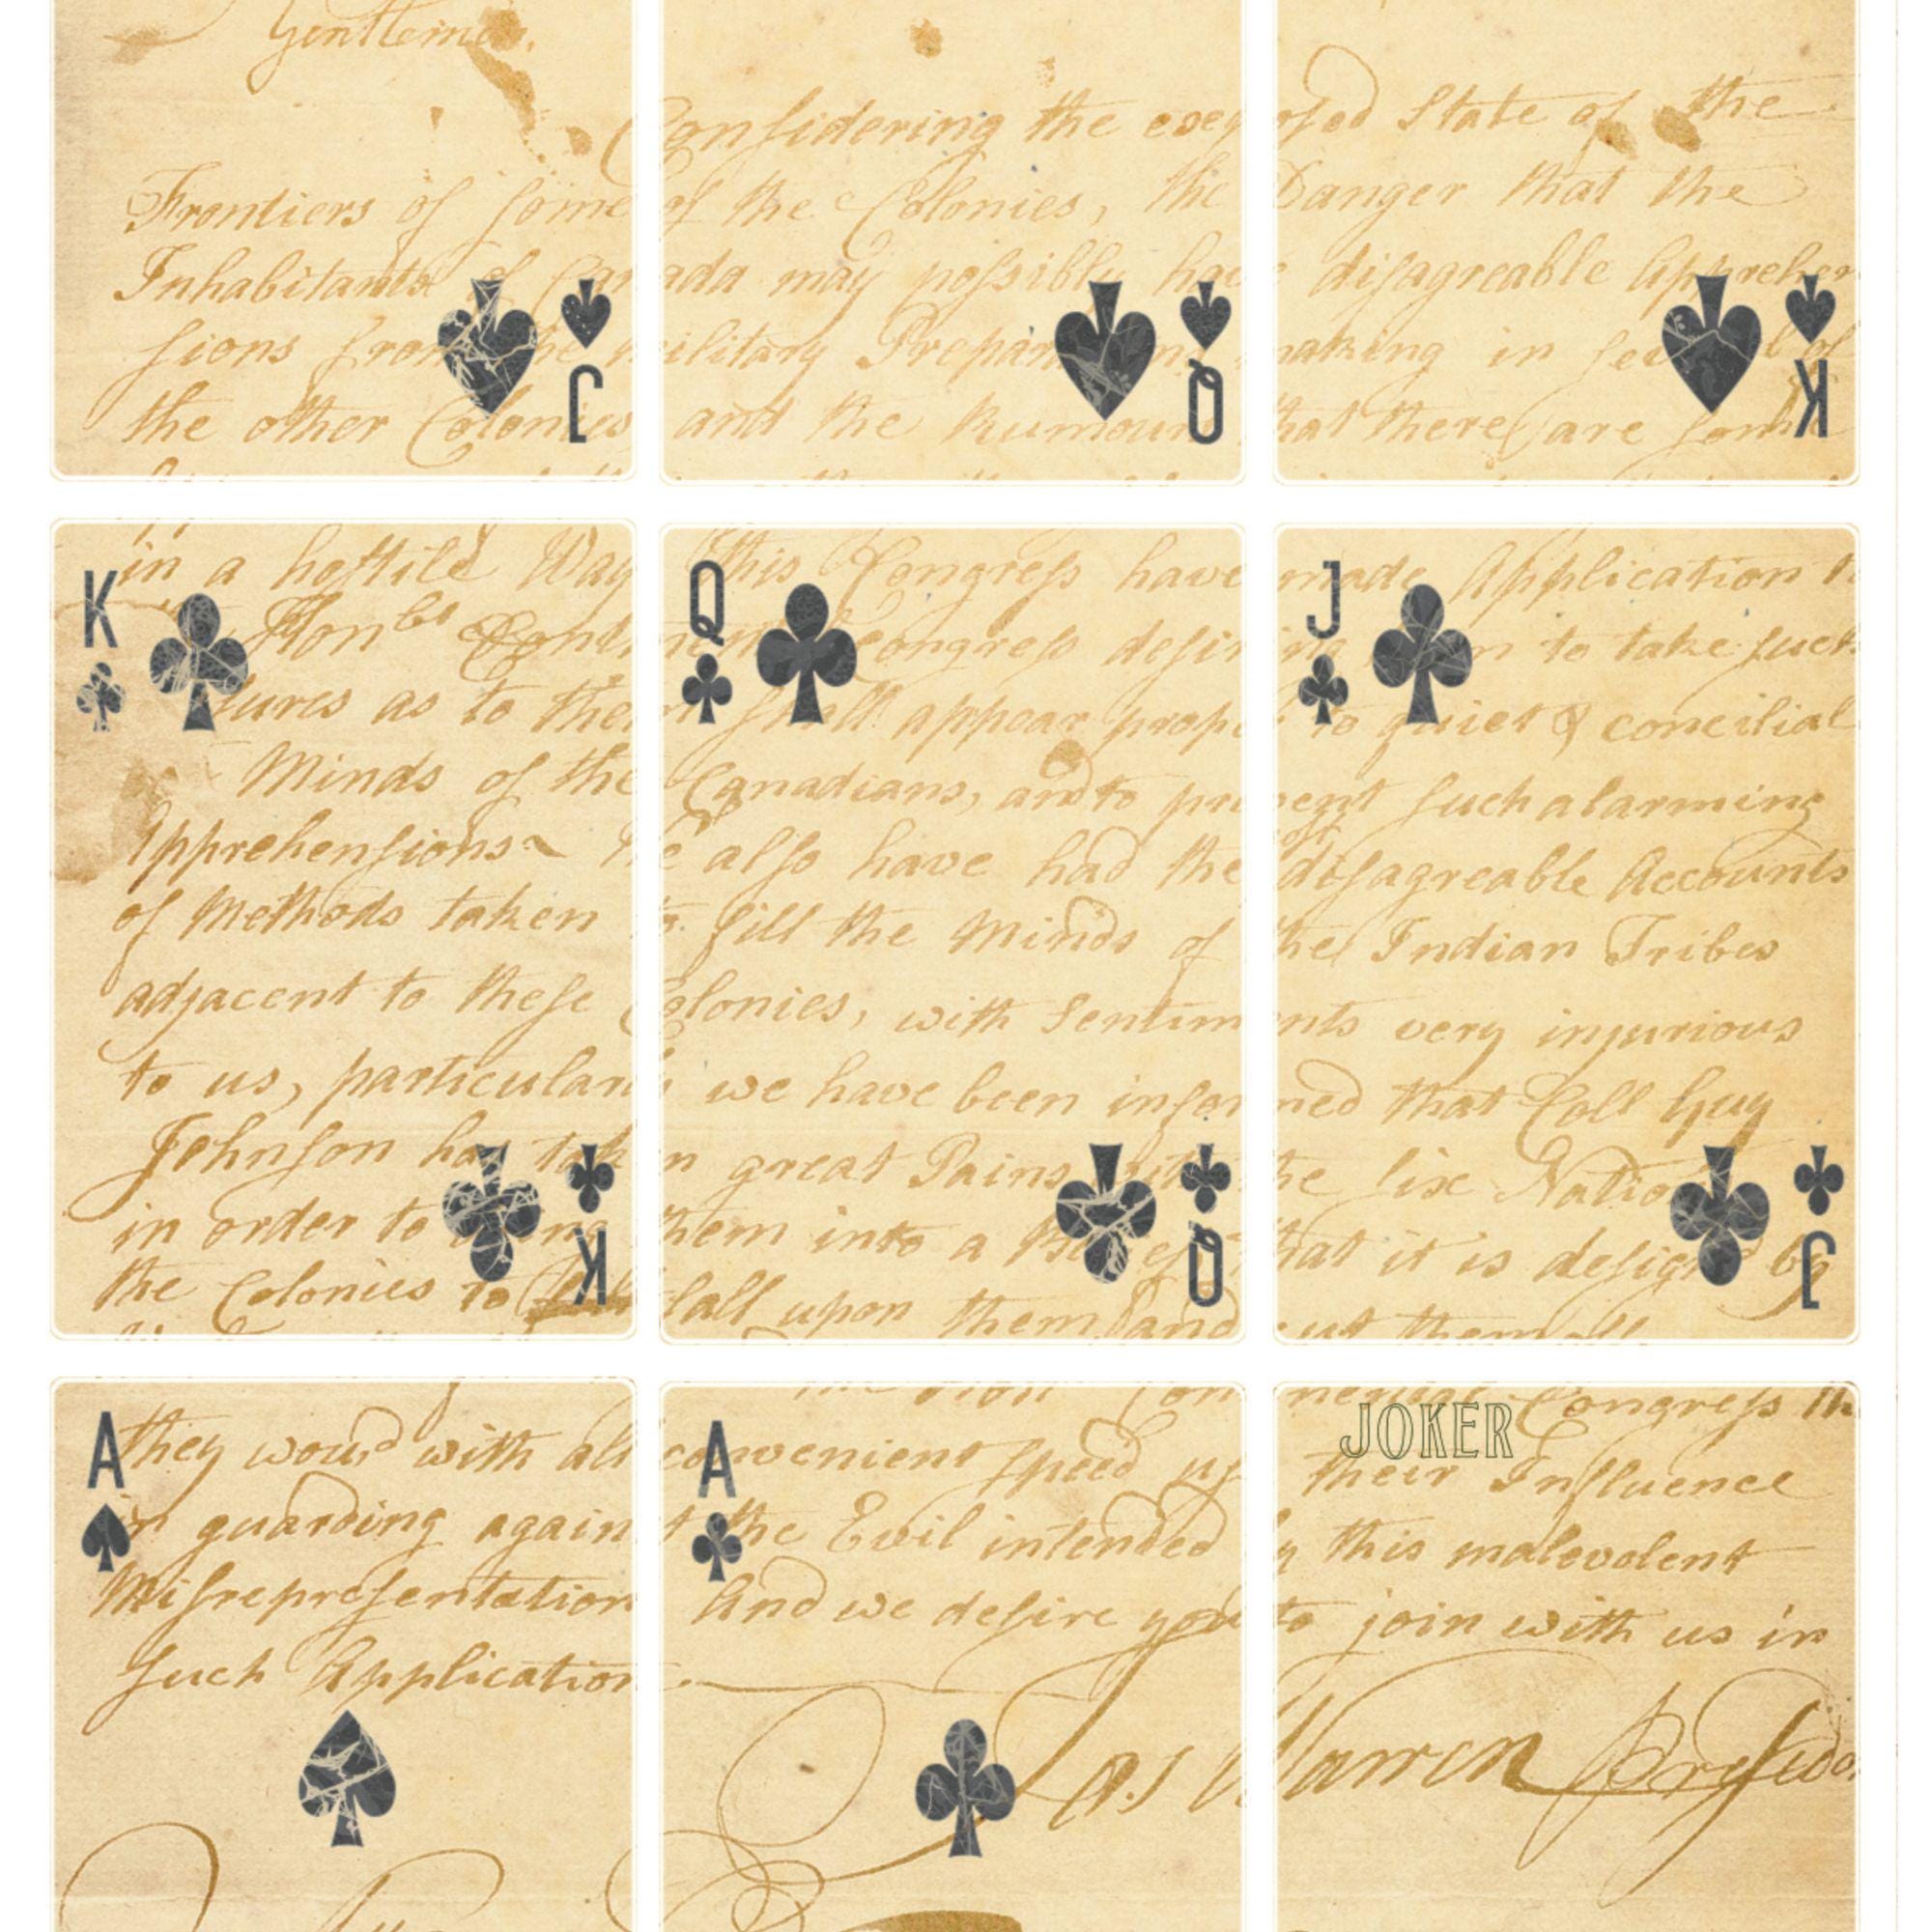 Gentlemen,
Considering the exposed State of the
Frontiers of some of the Colonies, the Danger that the
Inhabitants of Canada may possibly have disagreeable Apprehen
sions from the military Preparations making in several of
the other Colonies and the Rumours that there are some
J Q K
K Q J
in a hostile Way this Congress have made Application
Honbl Congress desir to take such
sures as to them shall appear proper to quiet & conciliat
Minds of the Canadians, and to prevent such alarming
Apprehensions We also have had the disagreeable Accounts
of Methods taken to fill the Minds of the Indian Tribes
adjacent to these Colonies, with Sentiments very injurious
to us, particularly we have been informed that Coll Guy
Johnson has taken great Pains with the six Nations
in order to bring them into a that it is design by
the Colonies to fall upon them and cut them off
K Q J
A A JOKER
Congress
they woud with all convenient speed us their Influence
in guarding against the Evil intended by this malevolent
Misrepresentation And we desire you to join with us in
such Application
Jas Warren Presidt